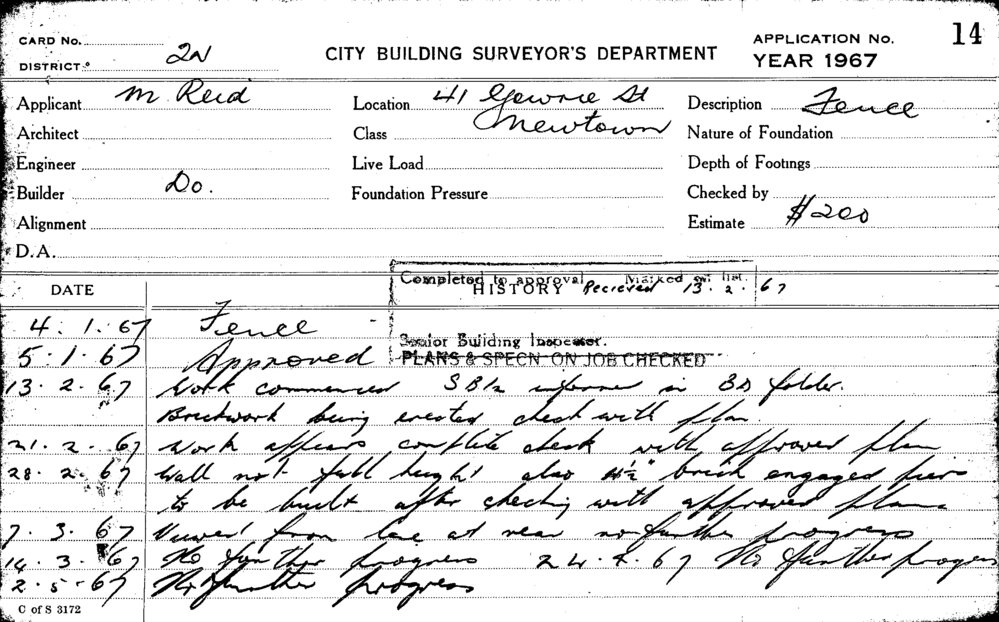 CARD No.
DISTRICT 2N
CITY BUILDING SURVEYOR'S DEPARTMENT
APPLICATION No. 14
YEAR 1967
Applicant M Reid
Location 41 Gowrie St
Newtown
Description Fence
Architect
Class
Nature of Foundation
Engineer
Live Load
Depth of Footings
Builder Do.
Foundation Pressure
Checked by
Alignment
Estimate $200
D.A.
Completed to approval Marked on list
DATE
HISTORY Recieved 13.2.67
4.1.67 Fence
Senior Building Inspector.
5.1.67 Approved
PLANS & SPECN ON JOB CHECKED
13.2.67 Work commenced informed in BS folder.
Brickwork being erected check with plan
21.2.67 Work appears complete check with approved plan
28.2.67 Wall not full height also 4½" brick engaged pier
to be built after checking with approved plan
7.3.67 Viewed from lane at rear no further progress
14.3.67 No further progress 24.4.67 No further progress
2.5.67 No further progress
C of S 3172